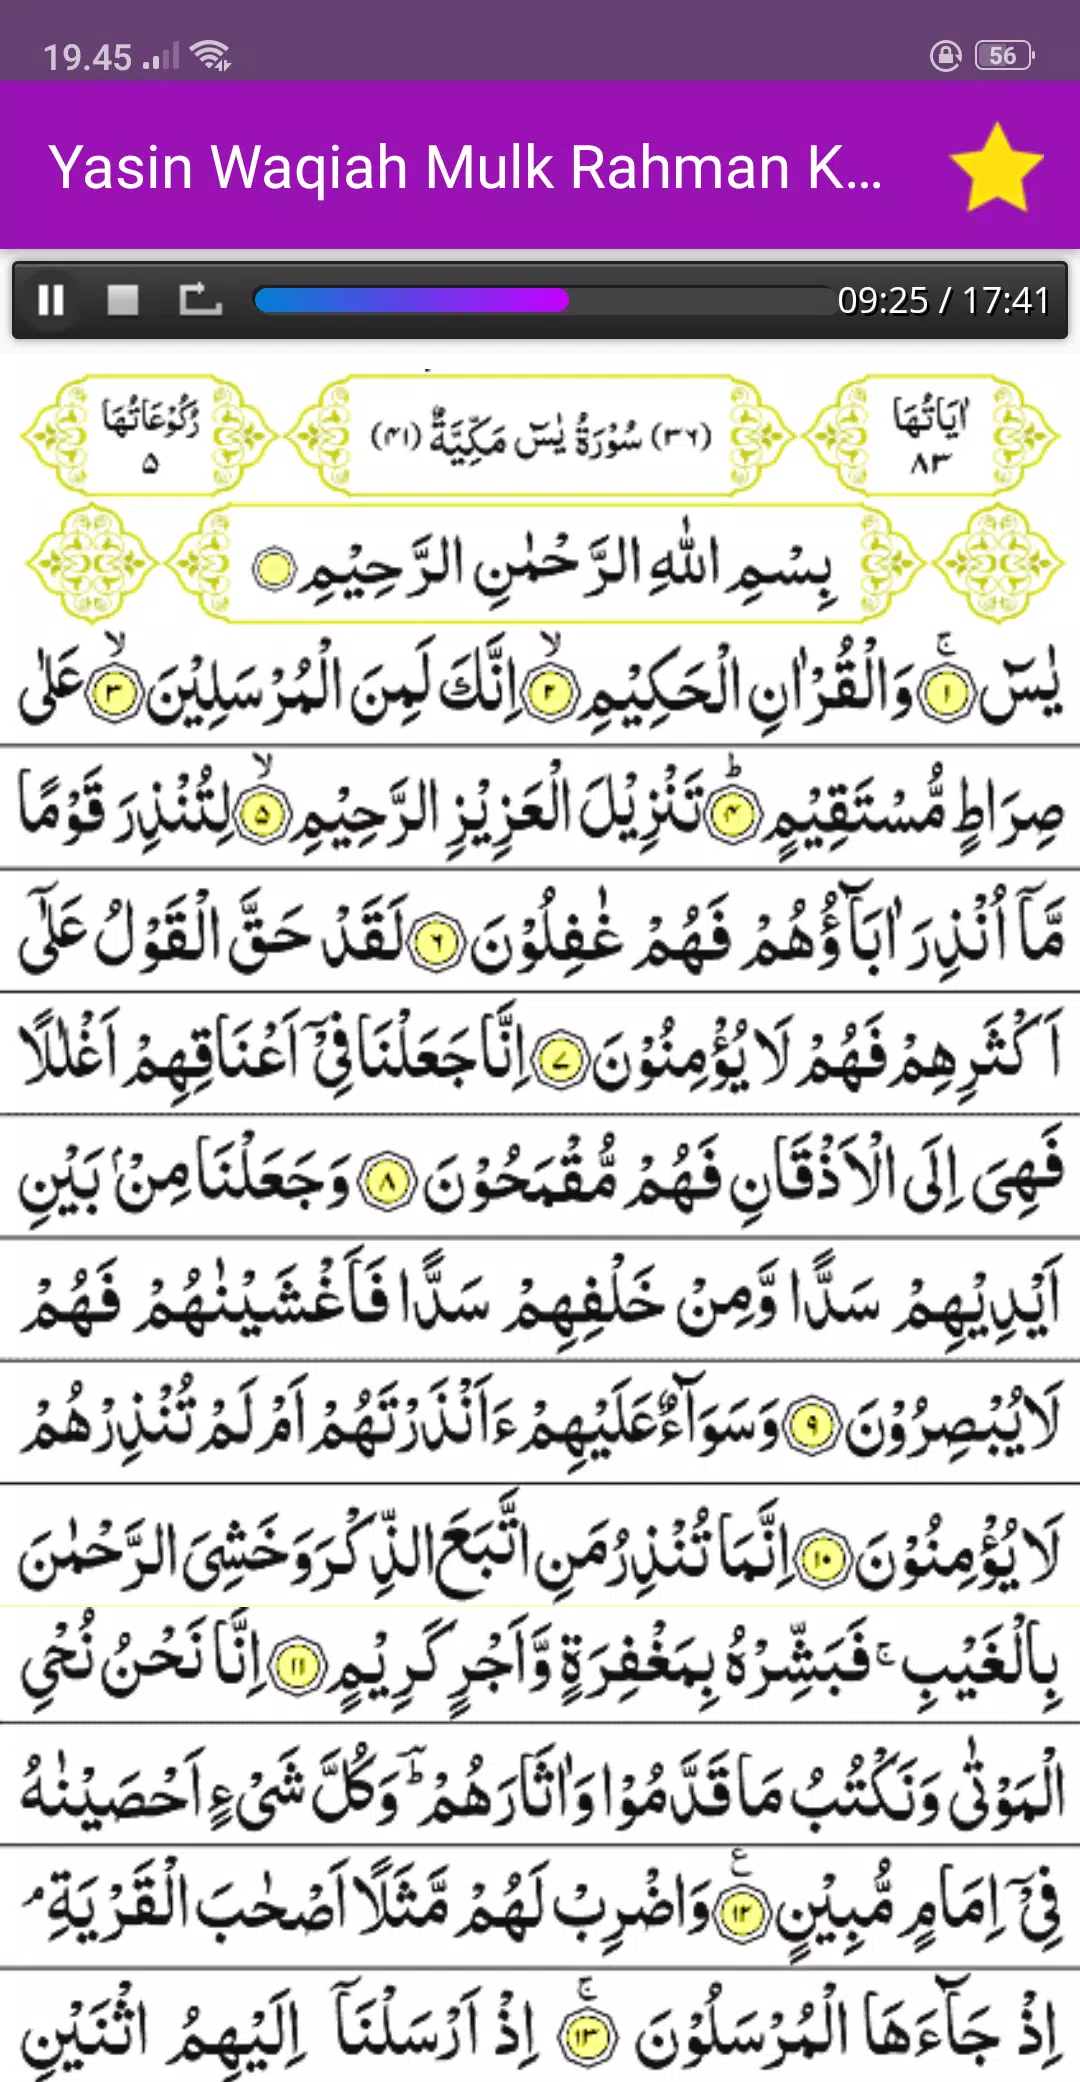 19.45
56
Yasin Waqiah Mulk Rahman K...
09:25 / 17:41
اٰیَاتُهَا ۸۳
(۳۶) سُوْرَةُ یٰسٓ مَکِّیَّةٌ (۴۱)
رُکُوْعَاتُهَا ۵
بِسْمِ اللّٰهِ الرَّحْمٰنِ الرَّحِیْمِ
یٰسٓ ۚ﴿۱﴾ وَالْقُرْاٰنِ الْحَکِیْمِ ۙ﴿۲﴾ اِنَّکَ لَمِنَ الْمُرْسَلِیْنَ ۙ﴿۳﴾ عَلٰی
صِرَاطٍ مُّسْتَقِیْمٍ ؕ﴿۴﴾ تَنْزِیْلَ الْعَزِیْزِ الرَّحِیْمِ ۙ﴿۵﴾ لِتُنْذِرَ قَوْمًا
مَّاۤ اُنْذِرَ اٰبَآؤُهُمْ فَهُمْ غٰفِلُوْنَ ﴿۶﴾ لَقَدْ حَقَّ الْقَوْلُ عَلٰۤی
اَکْثَرِهِمْ فَهُمْ لَا یُؤْمِنُوْنَ ﴿۷﴾ اِنَّا جَعَلْنَا فِیْۤ اَعْنَاقِهِمْ اَغْلٰلًا
فَهِیَ اِلَی الْاَذْقَانِ فَهُمْ مُّقْمَحُوْنَ ﴿۸﴾ وَجَعَلْنَا مِنْۢ بَیْنِ
اَیْدِیْهِمْ سَدًّا وَّمِنْ خَلْفِهِمْ سَدًّا فَاَغْشَیْنٰهُمْ فَهُمْ
لَا یُبْصِرُوْنَ ﴿۹﴾ وَسَوَآءٌ عَلَیْهِمْ ءَاَنْذَرْتَهُمْ اَمْ لَمْ تُنْذِرْهُمْ
لَا یُؤْمِنُوْنَ ﴿۱۰﴾ اِنَّمَا تُنْذِرُ مَنِ اتَّبَعَ الذِّکْرَ وَخَشِیَ الرَّحْمٰنَ
بِالْغَیْبِ ۚ فَبَشِّرْهُ بِمَغْفِرَةٍ وَّاَجْرٍ کَرِیْمٍ ﴿۱۱﴾ اِنَّا نَحْنُ نُحْیِ
الْمَوْتٰی وَنَکْتُبُ مَا قَدَّمُوْا وَاٰثَارَهُمْ ؕؔ وَکُلَّ شَیْءٍ اَحْصَیْنٰهُ
فِیْۤ اِمَامٍ مُّبِیْنٍ ﴿۱۲﴾ ع وَاضْرِبْ لَهُمْ مَّثَلًا اَصْحٰبَ الْقَرْیَةِ ۘ
اِذْ جَآءَهَا الْمُرْسَلُوْنَ ۚ﴿۱۳﴾ اِذْ اَرْسَلْنَاۤ اِلَیْهِمُ اثْنَیْنِ